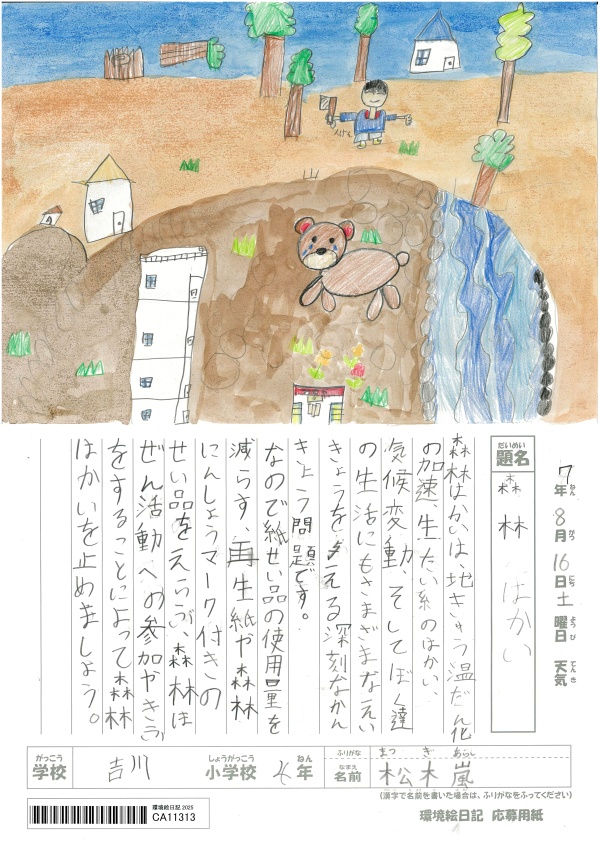 だいめい
題名
森林はかい
7年ねん8月がつ16日にち土曜日ようび 天気てんき
森林はかいは、地きゅう温だん化
の加速、生たい系のはかい、
気候変動、そしてぼく達
の生活にもさまざまなえい
きょうを与える深刻なかん
きょう問題です。
なので紙せい品の使用量を
減らす、再生紙や森林
にんしょうマーク付きの
せい品をえらぶ、森林ほ
ぜん活動への参加やきふ
をすることによって森林
はかいを止めましょう。
がっこう しょうがっこう ねん ふりがな まつ ぎ あらし
学校 吉川 小学校 4年 なまえ 名前 松木嵐
(漢字で名前を書いた場合は、ふりがなをふってください)
環境絵日記 応募用紙
環境絵日記 2025
CA11313